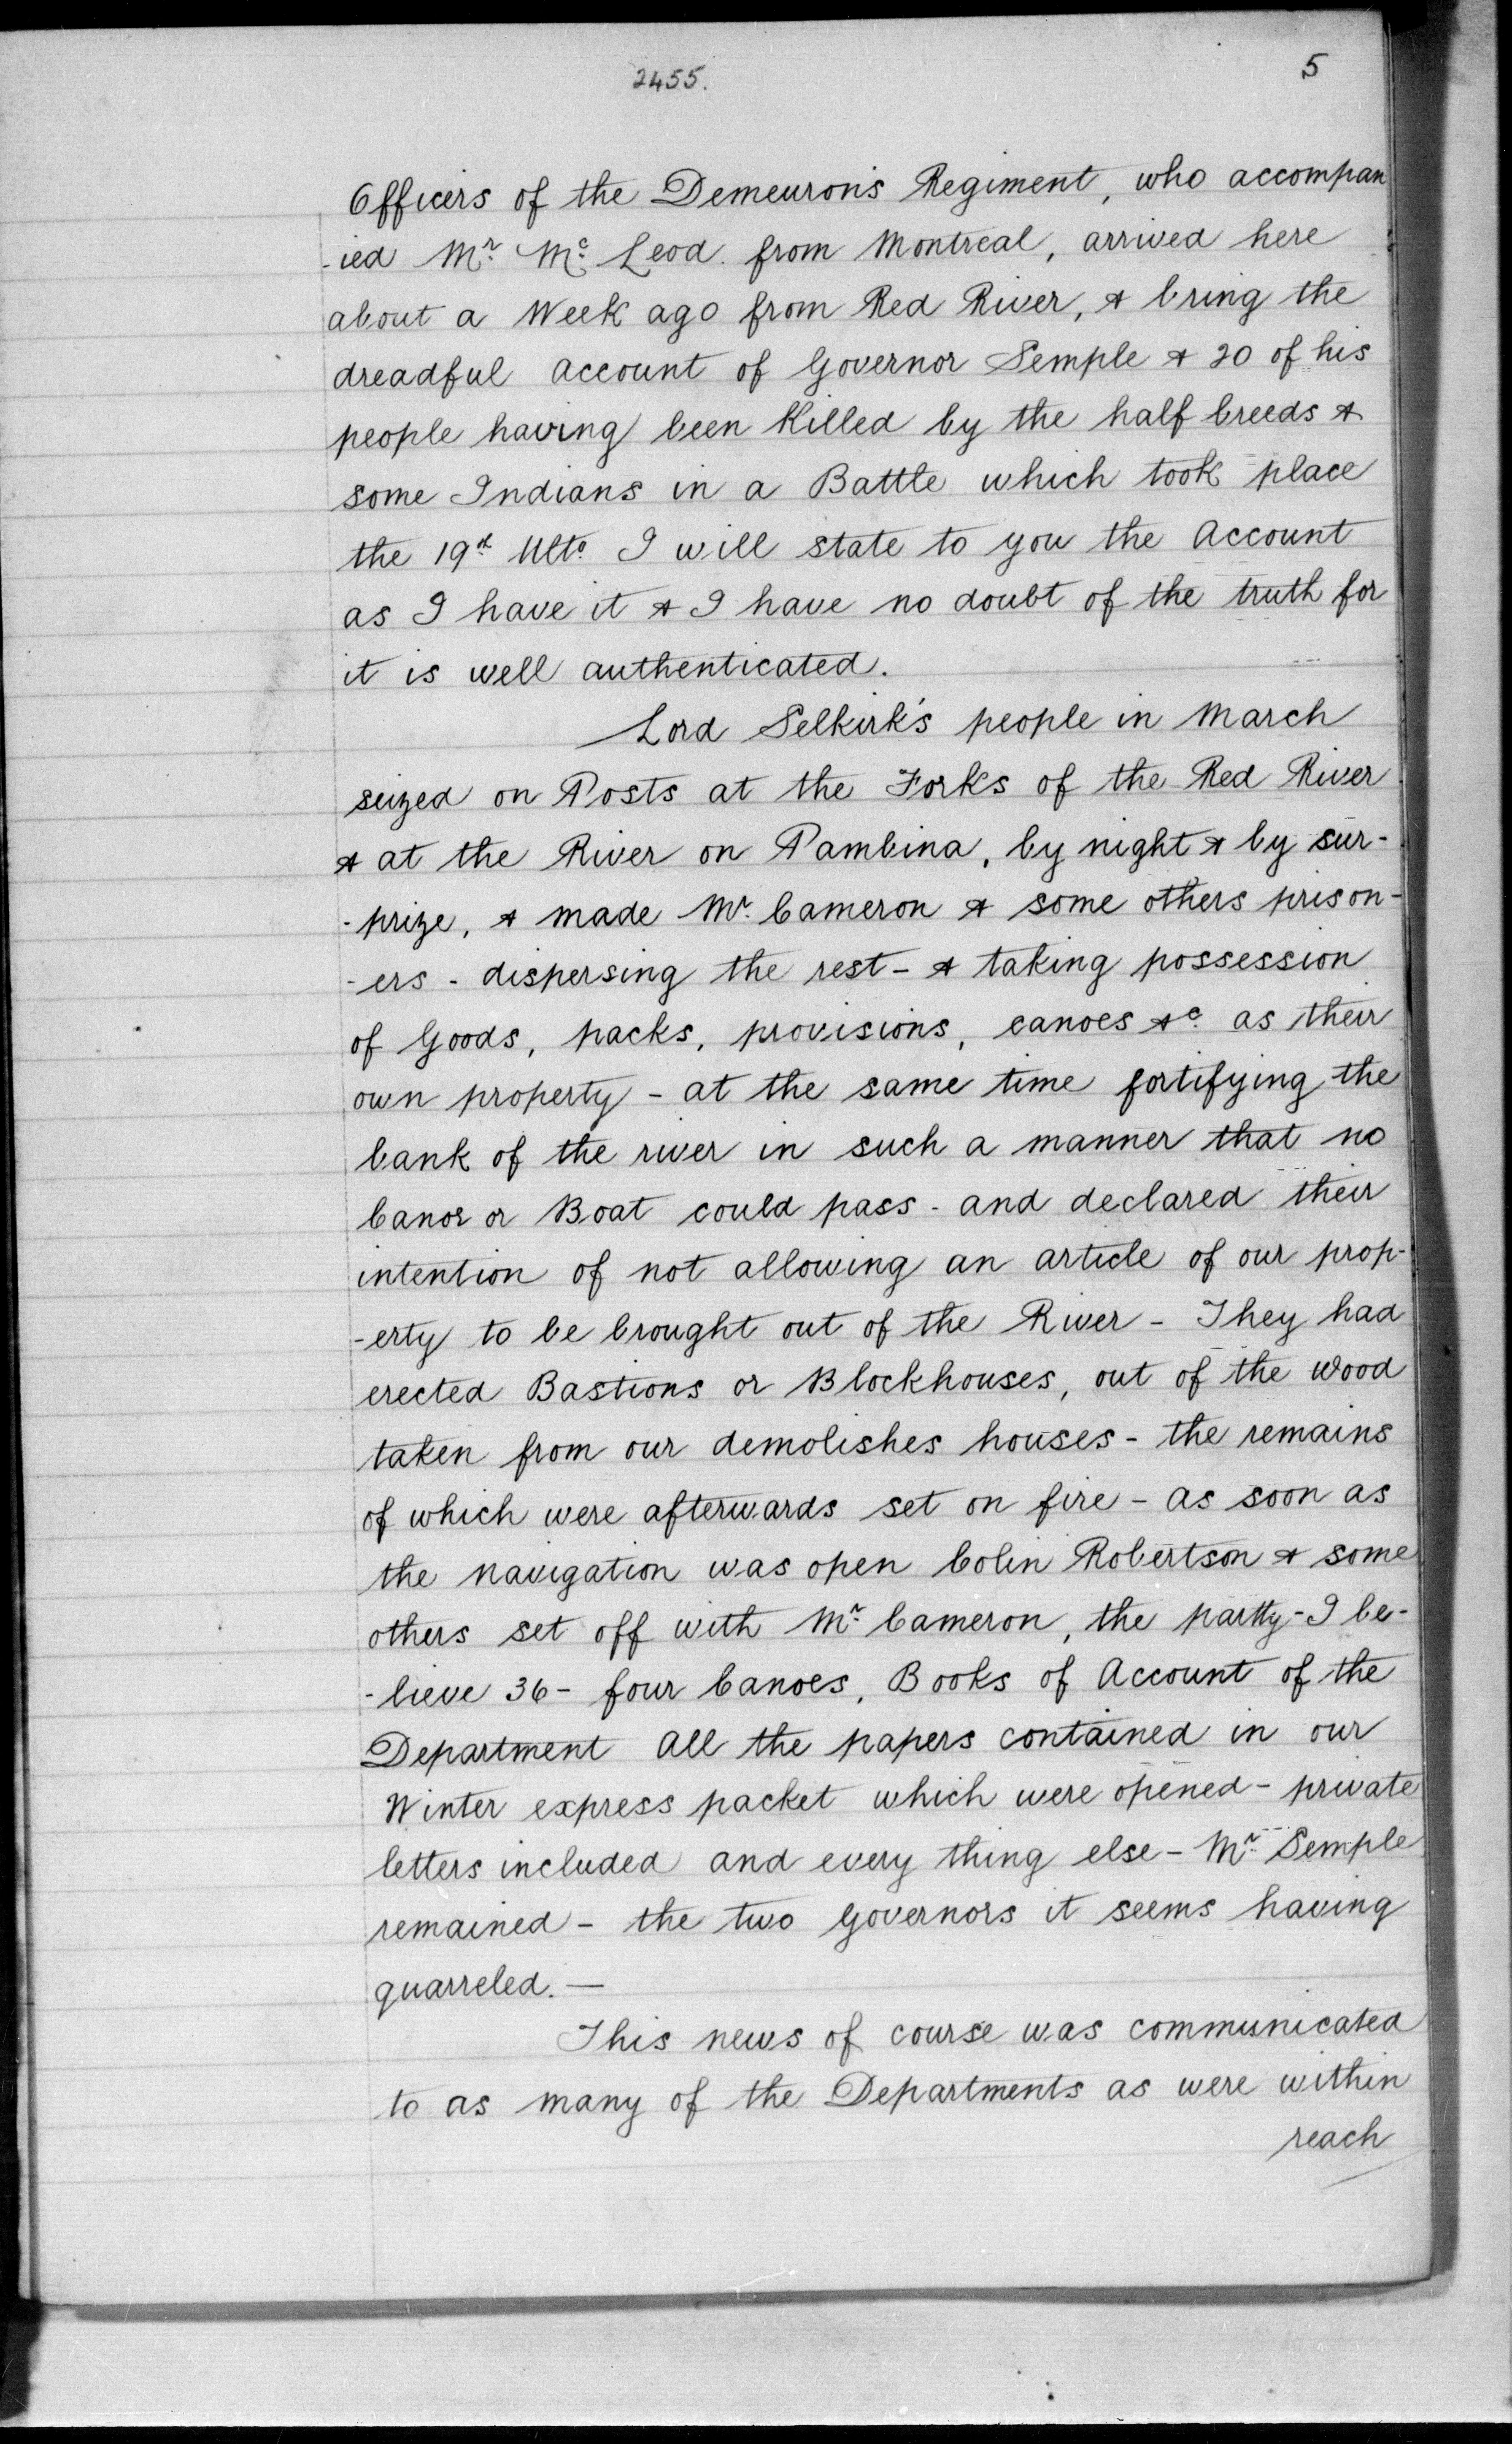 2455.
5
Officers of the Demeuron's Regiment, who accompan
-ied Mr. Mc. Leod. from Montreal, arrived here
about a Week ago from Red River, & bring the
dreadful account of Governor Semple & 20 of his
people having been Killed by the half breeds &
some Indians in a Battle which took place
the 19th Ulto. I will state to you the Account
as I have it & I have no doubt of the truth for
it is well authenticated.
Lord Selkirk's people in March
seized on Posts at the Forks of the Red River
& at the River on Pambina, by night & by sur-
-prize, & made Mr. Cameron & some others prison-
-ers - dispersing the rest - & taking possession
of Goods, packs, provisions, canoes &c. as their
own property - at the same time fortifying the
bank of the river in such a manner that no
Canoe or Boat could pass - and declared their
intention of not allowing an article of our prop-
-erty to be brought out of the River - They had
erected Bastions or Blockhouses, out of the wood
taken from our demolishes houses - the remains
of which were afterwards set on fire - as soon as
the navigation was open Colin Robertson & some
others set off with Mr. Cameron, the partty - I be-
-lieve 36 - four Canoes, Books of Account of the
Department all the papers contained in our
Winter express packet which were opened - private
letters included and every thing else - Mr. Semple
remained - the two Governors it seems having
quarreled. —
This news of course was communicated
to as many of the Departments as were within
reach